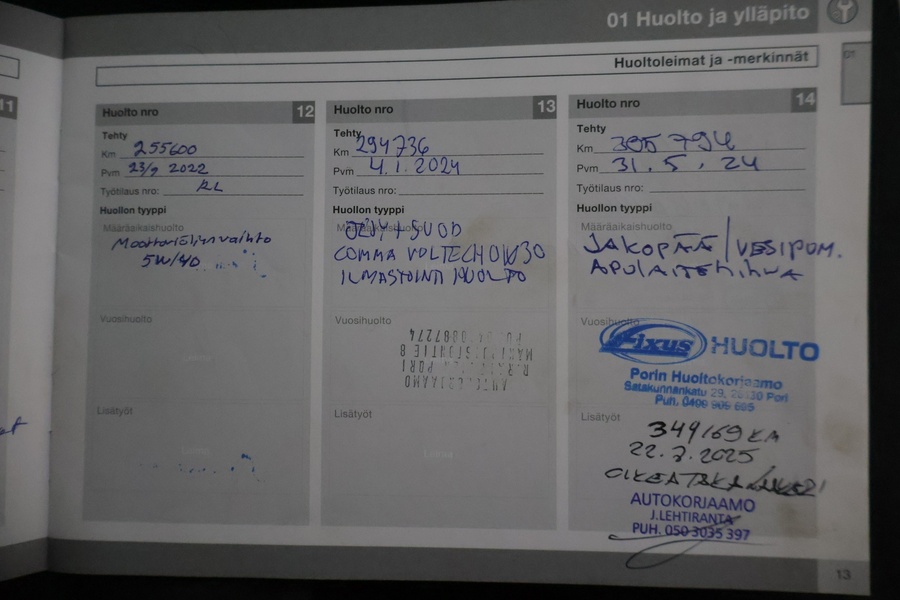 01 Huolto ja ylläpito
Huoltoleimat ja -merkinnät
01
11
Huolto nro 12
Tehty
Km 255600
Pvm 23/9 2022
Työtilaus nro: RL
Huollon tyyppi
Määräaikaishuolto
Moottoriöljynvaihto
5W/40
Vuosihuolto
Lisätyöt
Huolto nro 13
Tehty
Km 294736
Pvm 4.1.2024
Työtilaus nro:
Huollon tyyppi
Määräaikaishuolto
ÖLJY + SUOD
COMMA VOLTECH 0W30
ILMASTOINTI HUOLTO
Vuosihuolto
PORI
Lisätyöt
Huolto nro 14
Tehty
Km 305 794
Pvm 31.5.24
Työtilaus nro:
Huollon tyyppi
Määräaikaishuolto
JAKOPÄÄ / VESIPUM.
APULAITEHIHNA
Vuosihuolto
Fixus HUOLTO
Porin Huoltokorjaamo
Satakunnankatu 29, 28130 Pori
Puh. 0400 905 695
Lisätyöt
349169 KM
22.7.2025
OIKEA TAKA
AUTOKORJAAMO
J.LEHTIRANTA
PUH. 050 3035 397
13